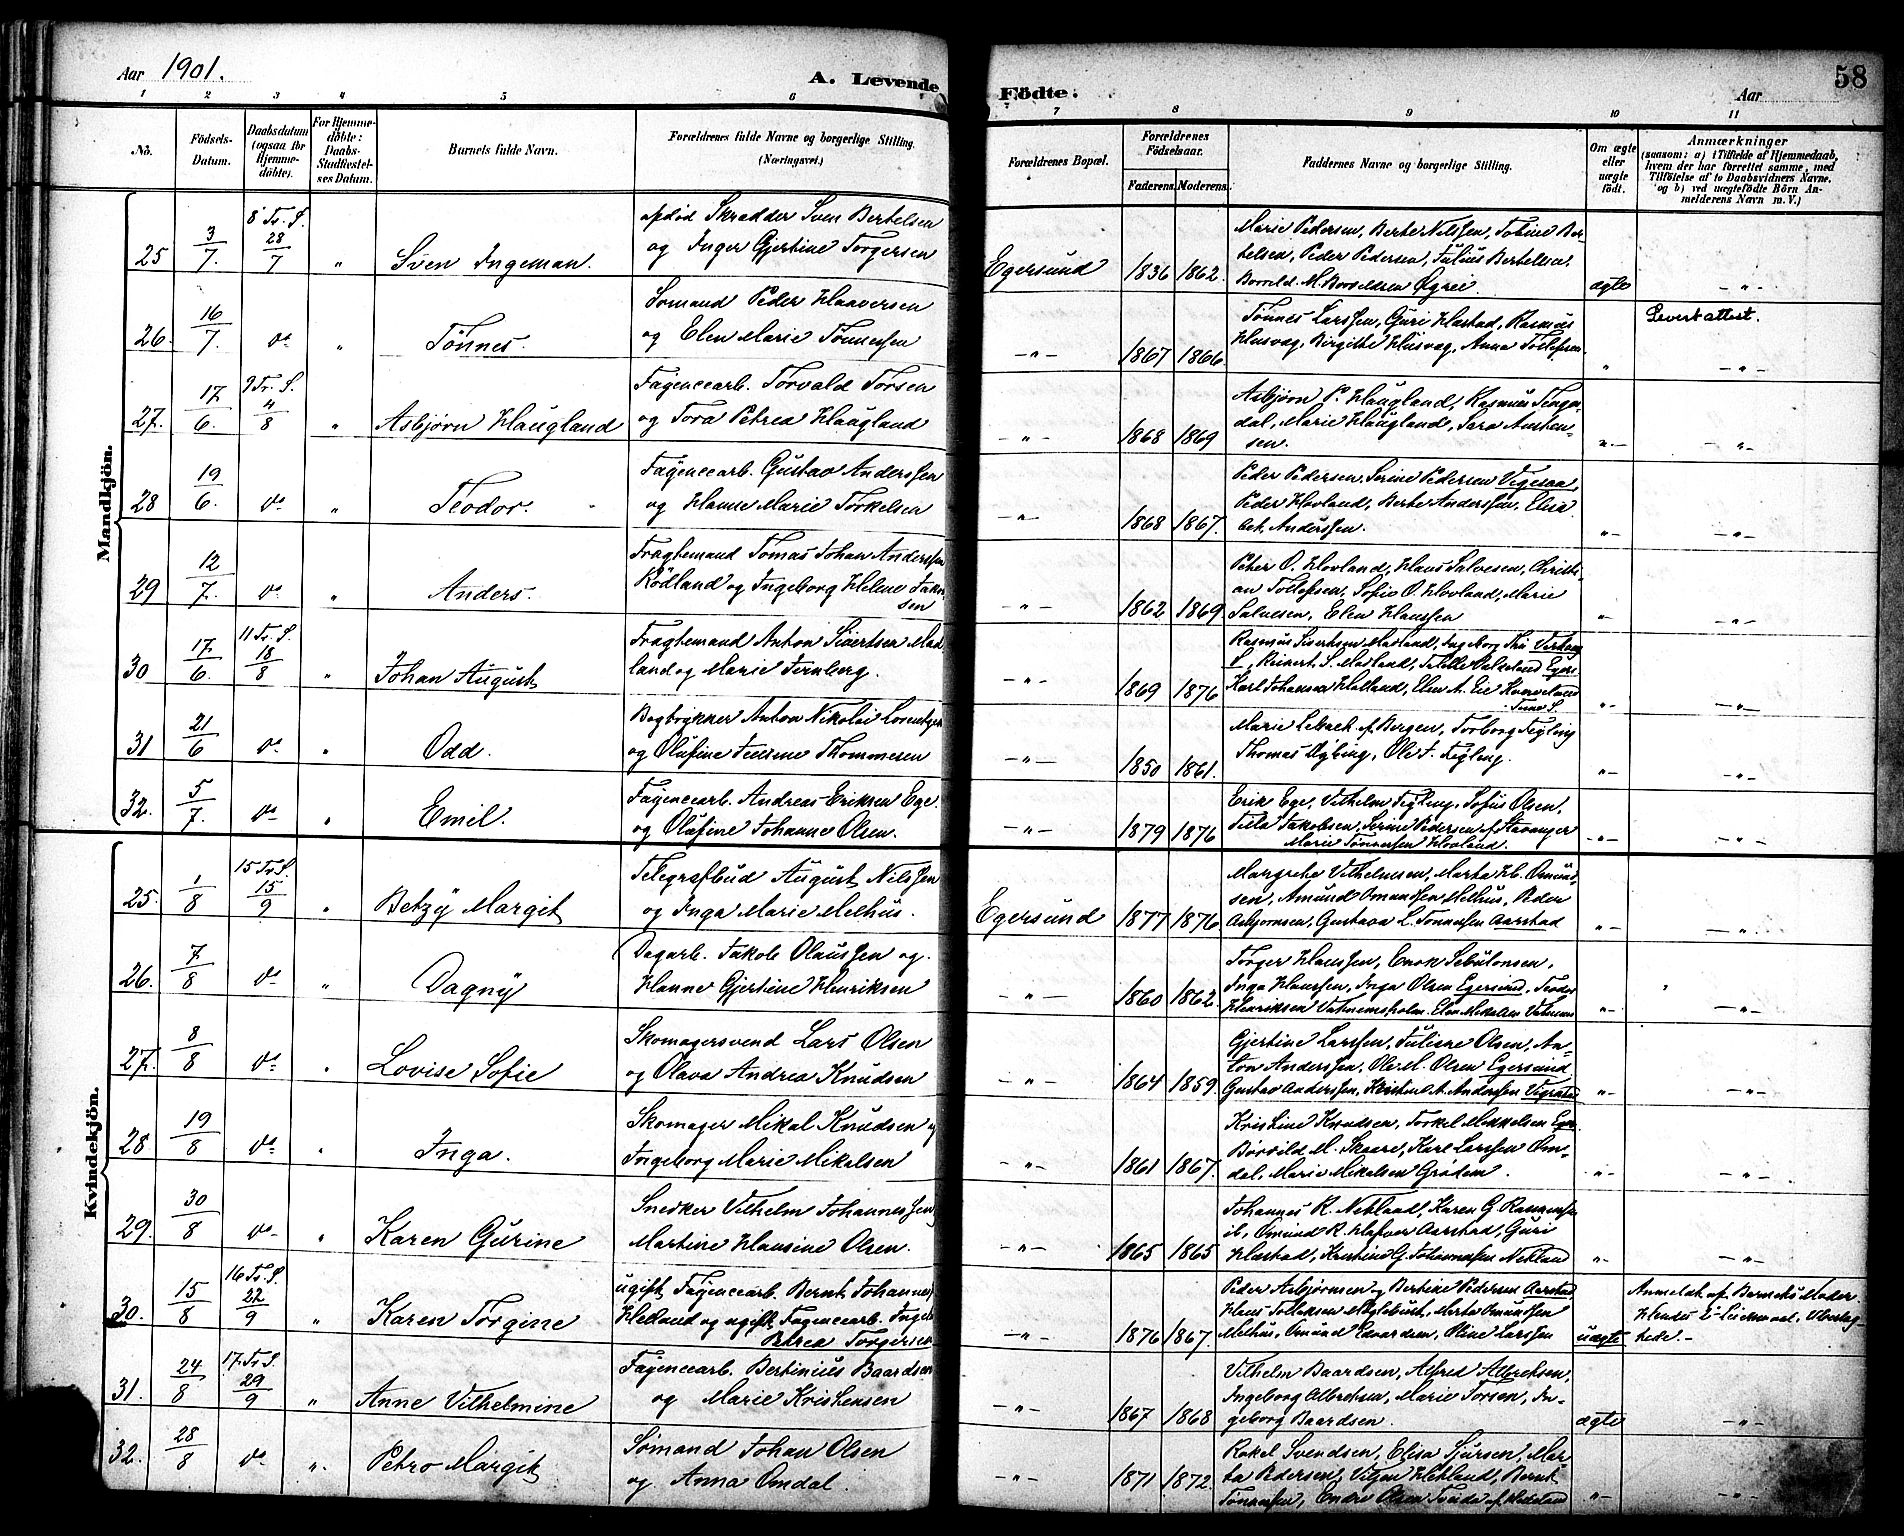 Aar 1901.
A. Levende Födte.
Aar
58
1 2 3 4 5 6 7 8 9 10 11
No.
Födsels-
Datum.
Daabsdatum
(ogsaa for
Hjemme-
döbte).
For Hjemme-
döbte:
Daabs-
Stadfæstel-
ses Datum.
Barnets fulde Navn.
Forældrenes fulde Navne og borgerlige Stilling.
(Næringsvei.)
Forældrenes Bopæl.
Forældrenes
Födselsaar.
Faderens. Moderens.
Faddernes Navne og borgerlige Stilling.
Om ægte
eller
uægte
födt.
Anmærkninger
(saasom: a) i Tilfælde af Hjemmedaab,
hvem der har forrettet samme, med
Tilföielse af to Daabsvidners Navne.
og b) ved uægtefödte Börn An-
melderens Navn m. V.)
Mandkjön.
25 3/7. 8 Tr. S. 28/7 " Sven Ingeman.
afdød Skrædder Sven Bertelsen
og Inger Gjertine Torgersen
Egersund 1836 1862.
Marie Pedersen, Berte Nilssen, Tobine Ber-
telsen, Peder Pedersen, Julius Bertelsen,
ægte - " -
26. 16/7. do " Tönnes.
Sömand Peder Haaversen
og Elen Marie Tönnessen
- " - 1867 1866.
Tönnes Larssen, Guri Hæstad, Rasmus
Husvæg, Birgitte Husvæg, Anna Tollefsen
" Levert attest.
- " -
27. 17/6. 9 Tr. S. 4/8 " Asbjørn Haugland
Fayencearb. Torvald Torsen
og Tora Petrea Haugland
- " - 1868 1869
Asbjørn P. Haugland, Rasmus Tenge-
dal, Marie Haugland, Sara Austen-
sen.
" - "
28 19/6. do " Teodor.
Fayencearb. Gustav Anderssen
og Hanne Marie Torkelsen
- " - 1868 1867.
Peder Pedersen, Serine Pedersen Vigesaa,
Peder Hovland, Berte Anderssen, Elisa
bet Anderssen.
" - - " -
29 12/7. do " Anders.
Fragtemand Tomas Johan Anderssen
Rödland og Ingeborg Helene Jakob-
sen
- " - 1862 1869.
Peter O. Hovland, Hans Salvesen, Christi-
an Tollefsen, Sofie O. Hovland, Marie
Salvesen, Elen Hanssen
" - - " -
30 17/6. 11 Tr. S. 18/8 " Johan August
Fragtemand Anton Sivertsen Mad
land og Marie Fernberg.
- " - 1869 1876
Karl Johansen Hålland, Elen A. Eie
" - - " -
31 21/6 do " Odd.
Bogtrykker Anton Nikolai Lorentzen
og Olufine Thommesen
- " - 1850 1861.
Marie Lebach af Bergen, Torborg Tegling
Thomas Nybing, Ole T. Tegling.
" - - " -
32. 5/7. do " Emil.
Fayencearb. Andreas Eriksen Ege.
og Olufine Johanne Olsen.
- " - 1879 1876
Erik Ege, Vilhelm Tegling, Sofus Olsen,
Tilla Jakobsen, Serine Pedersen af Stavanger
Marie Tönnessen Hovland.
" - - " -
Kvindekjön.
25. 1/8 15 Tr S. 15/9 " Betzy Margit
Telegrafbud August Nilssen
og Inga Marie Melhus.
Egersund 1877 1876
Margrete Vilhelmsen, Marta Hb. Omund-
sen, Amund Omundsen Melhus, Peder
Asbjørnsen, Gustava L. Tönnessen Aarstad
" - - " -
26. 7/8 do " Dagny
Dagarb. Jakob Olaussen og
Hanne Gjertine Henriksen
- " - 1860 1862.
Torger Hanssen, Enok Sebulonsen,
Inga Hanssen, Inga Olsen Egersund, Teodor
Henriksen Vatnemsholm.
" - - " -
27. 8/8 do " Lovise Sofie
Skomagersvend Lars Olsen
og Olava Andrea Knudsen
- " - 1864 1859.
Gjertine Larssen, Juliane Olsen, An-
ton Anderssen, Ole M. Olsen Egersund
" - - " -
28 19/8 do " Inga.
Skomager Mikal Knudsen og
Ingeborg Marie Mikalsen
- " - 1861 1867.
Kristine Knudsen, Torkel Mikkelsen
Børsild M. Skaare, Karl Larssen Om-
dal, Marie Mikalsen Grödem.
" - - " -
29. 30/8 do " Karen Gurine
Snedker Vilhelm Johannessen
Martine Hansine Olsen.
- " - 1865 1865
Johannes R. Netland, Karen G. Rasmussen
ib, Omund R. Aarstad, Guri
Hæstad, Kristine G. Johannessen Netland
" - - " -
30. 15/8 16 Tr. S. 22/9 " Karen Torgine
ugift Fayencearb. Bernt Johannes
Helland og ugift Fayencearb. Inge
Petrea Torgersen
- " - 1876 1867.
Peder Asbjørnsen og Bertine Pedersen Aarstad
Hans Tollaksen Myklebust, Marta Omundsen
Melhus, Omund Edvardsen, Oline Larssen
uægte
Anmeldt af Barnets Moder
31. 24/8 17. Tr. S. 29/9 " Anne Vilhelmine
Fayencearb. Bertinius Baardsen
og Marie Kristensen
- " - 1867 1868
Vilhelm Baardsen, Alfred Albretsen,
Ingeborg Albretsen, Marie Torsen, In-
geborg Baardsen.
ægte - " -
32. 28/8 do " Petra Margit
Sömand Johan Olsen
og Anna Omdal.
- " - 1871 1872.
Rakel Svendsen, Elisa Sjursen, Mar-
ta Pedersen, Hetland, Bernt
Tönnessen, Endre Olsen
" - - " -